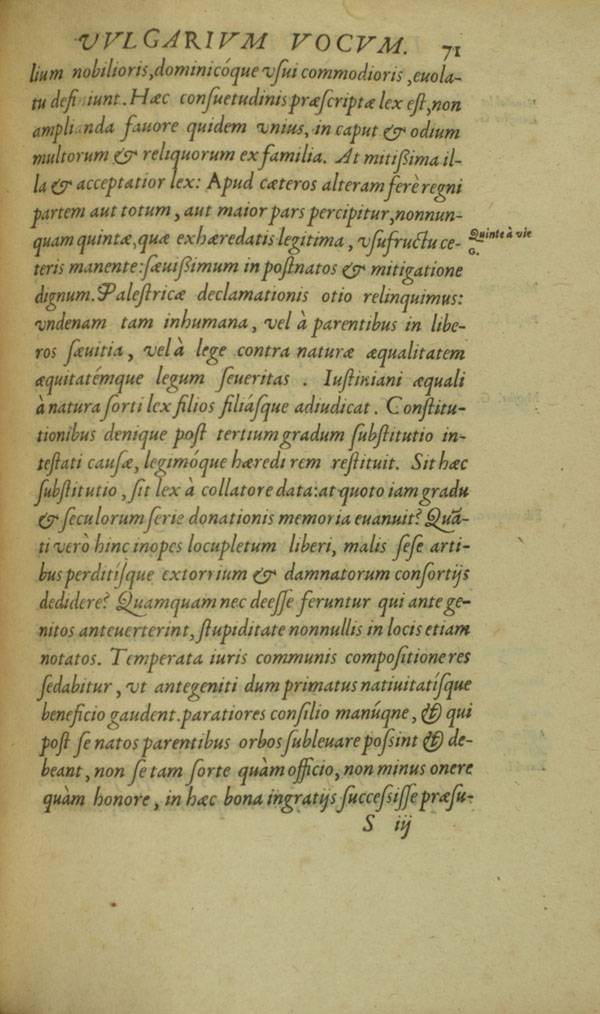 VVLGARIVM VOCVM. 71
lium nobilioris, dominicóque vſui commodioris, euola-
tu defi iunt. Hæc conſuetudinis præſcriptæ lex eſt, non
ampli nda fauore quidem vnius, in caput & odium
multorum & reliquorum ex familia. At mitißima il-
la & acceptatior lex: Apud cæteros alteram ferè regni
partem aut totum, aut maior pars percipitur, nonnun-
quam quintæ, quæ exhæredatis legitima, vſufructu ce-
Quinte à vie
G.
teris manente: ſæuißimum in poſtnatos & mitigatione
dignum. Palęſtricæ declamationis otio relinquimus:
vndenam tam inhumana, vel à parentibus in libe-
ros ſæuitia, vel à lege contra naturæ æqualitatem
æquitatémque legum ſeueritas. Iuſtiniani æquali
à natura ſorti lex filios filiáſque adiudicat. Conſtitu-
tionibus denique poſt tertium gradum ſubſtitutio in-
teſtati cauſæ, legimóque hæredi rem reſtituit. Sit hæc
ſubſtitutio, ſit lex à collatore data: at quoto iam gradu
& ſeculorum ſerie donationis memoria euanuit? Quã-
ti verò hinc inopes locupletum liberi, malis ſeſe arti-
bus perditíſque extorrium & damnatorum conſortijs
dedidere? Quamquam nec deeſſe feruntur qui ante ge-
nitos anteuerterint, ſtupiditate nonnullis in locis etiam
notatos. Temperata iuris communis compoſitione res
ſedabitur, vt antegeniti dum primatus natiuitatiſque
beneficio gaudent. paratiores conſilio manúqne, & qui
poſt ſe natos parentibus orbos ſubleuare poſsint & de-
beant, non ſe tam ſorte quàm officio, non minus onere
quàm honore, in hæc bona ingratijs ſucceſsiſſe præſu-
S iij